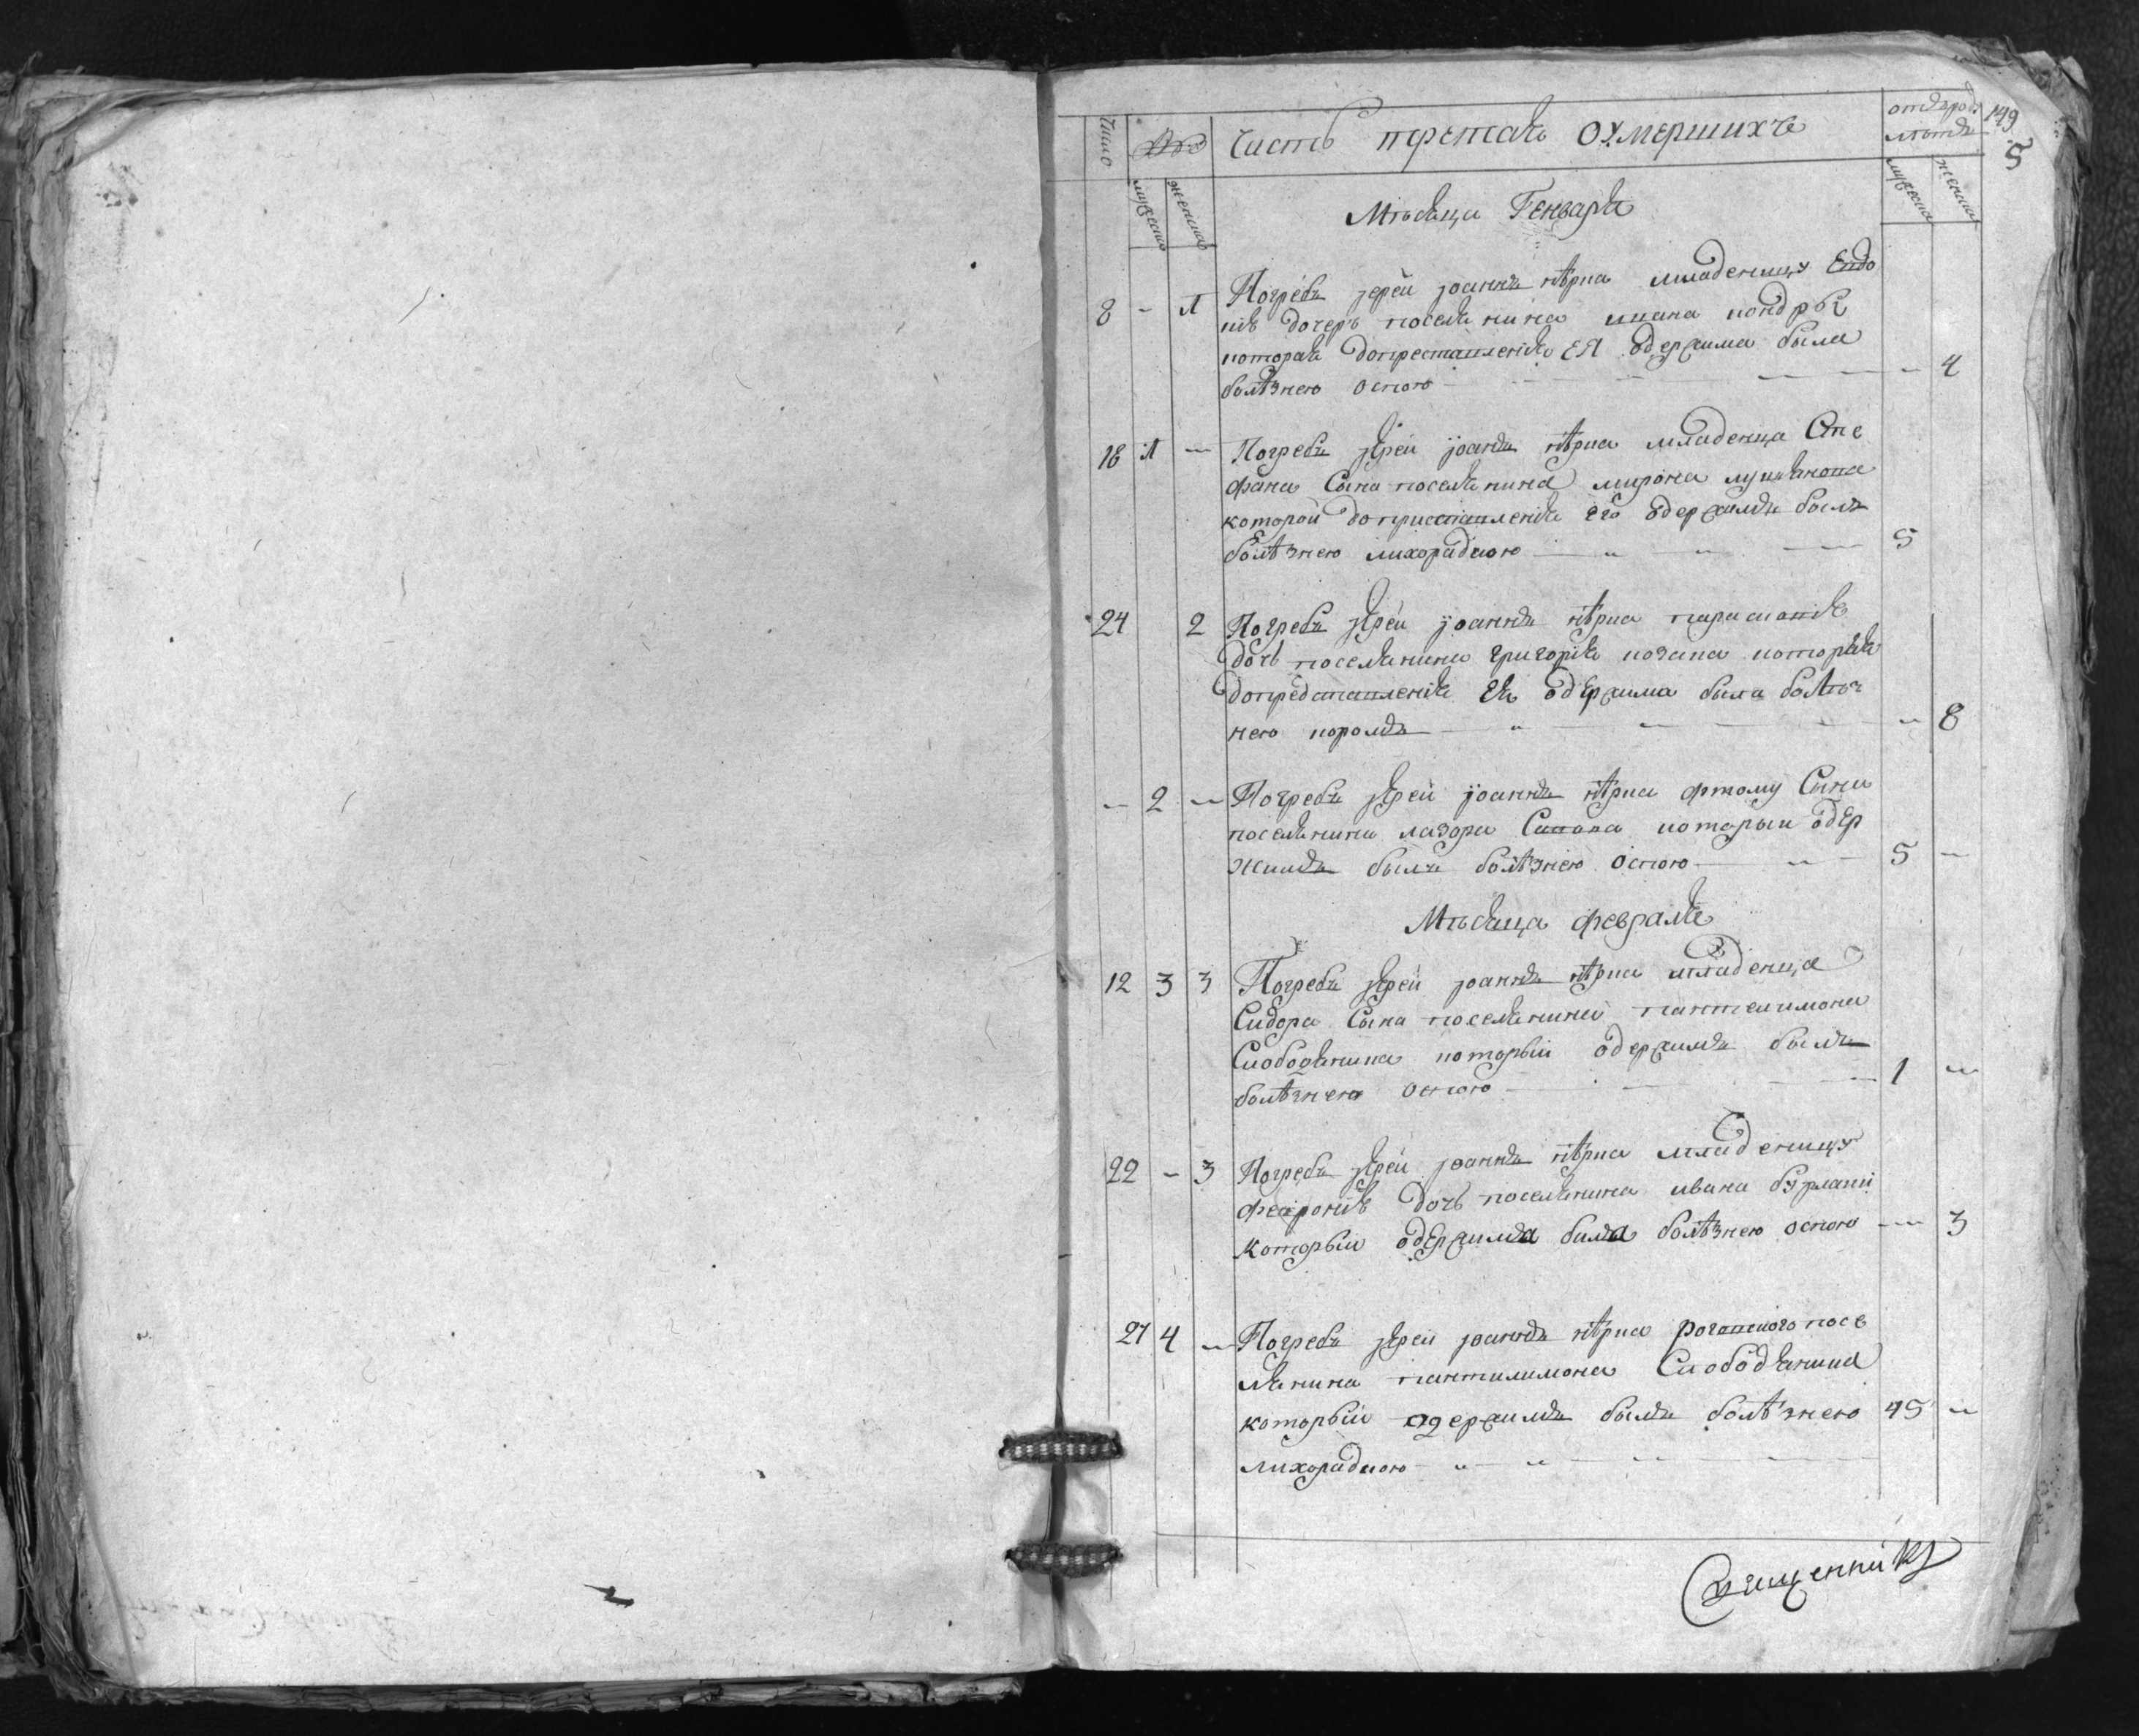 Число Часть третая о умершихъ от роду летъ 149
5
мужеска женска мужеска женска
Мѣсяца Генваря
8 - 1 Погребъ іерей Іоаннъ младеницу Евдо
кію дочеръ поселянина ивана
которая до преставленія ея одержима была
болѣзнею оспою - 4
18 1 - Погребъ іерей Іоаннъ младенца Сте
фана Сына поселянина мирона
которой до приставленія его одержимъ былъ
болѣзнею лихорадкою 5
24 2 Погребъ іерей Іоаннъ парасковію
дочь поселянина григорія козака которая
до представленія ея одержима была болѣз
нею - 8
- 2 - Погребъ іерей Іоаннъ артому Сына
поселянина лазора Савана которыи одер
жимъ былъ болѣзнею оспою 5 -
Мѣсяца февраля
12 3 3 Погребъ іерей Іоаннъ младенца
Сидора Сына поселянина пантелимона
Слободяника которыи одержимъ былъ
болѣзнею оспою 1 -
22 - 3 Погребъ іерей Іоаннъ младеницу
февронію дочь поселянина ивана бурлаки
которыи одержима била болѣзнею оспою - 3
27 4 - Погребъ іерей Іоаннъ посе
лянина пантилимона Слободяника
которыи одержимъ былъ болѣзнею 45 -
лихорадкою
Священникъ